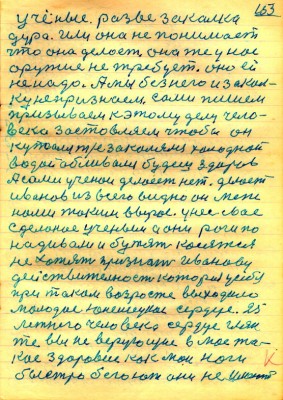 153
учёные. разве закалка
дура. или она не понимает
что она делает она же у нас
оружие не требует. оно ей
не надо. А мы без него и закал-
ку не признаем. сами пишем
призываем к этому делу чело-
века заставляем чтобы он
холодной
водой обливали будеш здоров
А сами ученои делает нет. делает
иванов из всего видно он меж
нами таким вырос. у нее свае
сделаное ученыи а они роги по
надивали и бужят косятся
не хотят признать иванову
действительность которая у себя
при таком возросте выходило
молодое юнешеское сердце. 25
летнего человека сердце глян
те вы не верующие в мое та-
кое здоровие как мои ноги
быстро бегают они не